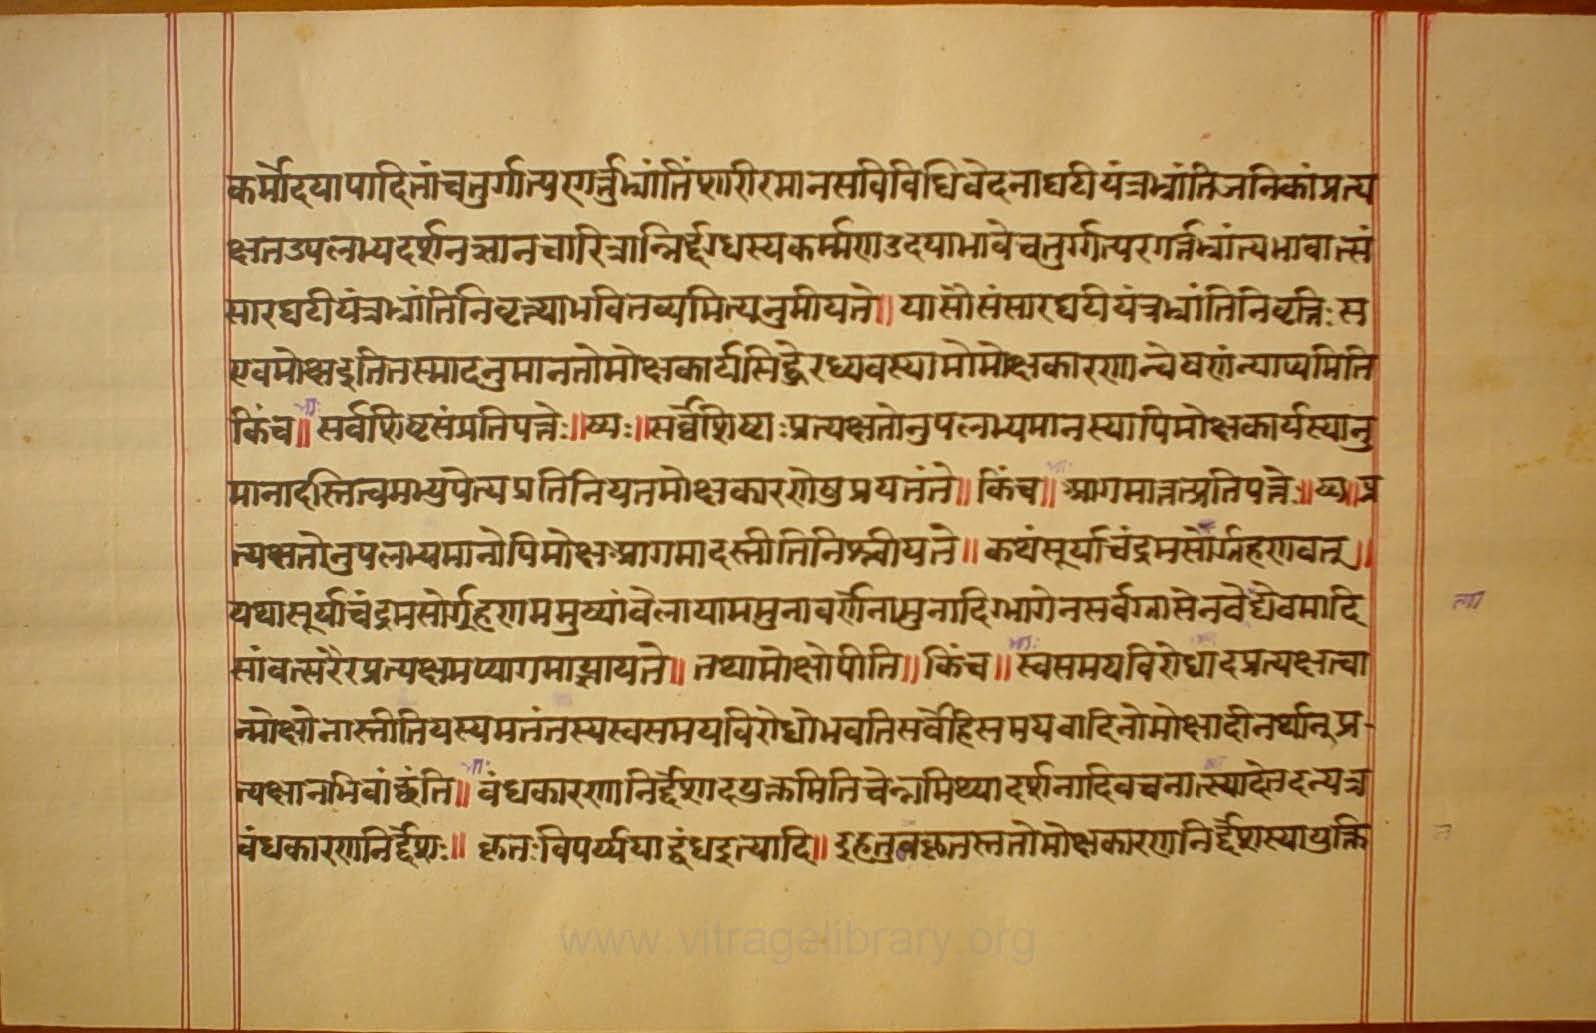 कर्मोदयापादितांचतुर्गात्यरगर्त्तभ्रांतिंशारीरमानसविविधिवेदनाघटीयंत्रभ्रांतिजनिकांप्रत्य
क्षतउपलभ्यदर्शनज्ञानचारित्राग्निर्द्दग्धस्यकर्म्मणउदयाभावेचतुर्गात्यरगर्त्तभ्रांत्यभावात्सं
सारघटीयंत्रभ्रांतिनिवृत्त्याभवितव्यमित्यनुमीयते॥ यासौसंसारघटीयंत्रभ्रांतिनिवृत्तिः स
एवमोक्षइतितस्मादनुमानतोमोक्षकार्यसिद्धेरध्यवस्यामोमोक्षकारणान्वेषणंन्याय्यमिति
किंच॥ सर्वशिष्टसंप्रतिपत्तेः॥ष्यः॥सर्वेशिष्टाःप्रत्यक्षतोनुपलभ्यमानस्यापिमोक्षकार्यस्यानु
मानादस्तित्वमभ्युपेत्यप्रतिनियतमोक्षकारणेषुप्रयतंते॥ किंच॥ आगमात्तत्प्रतिपत्तेः॥ष्यः॥प्र
त्यक्षतोनुपलभ्यमानोपिमोक्षःआगमादस्तीतिनिश्चीयते॥ कथंसूर्याचंद्रमसोर्ग्रहणवत्॥
यथासूर्याचंद्रमसोर्ग्रहणममुष्यांवेलायाममुनावर्णेनामुनादिग्भागेनसर्वग्रासेनवेत्येवमादि
ला
सांवत्सरैरप्रत्यक्षमप्यागमाज्ञायते॥ तथामोक्षोपीति॥ किंच॥ स्वसमयविरोधादप्रत्यक्षत्वा
न्मोक्षोनास्तीतियस्यमतंतस्यस्वसमयविरोधोभवतिसर्वेहिसमयवादिनोमोक्षादीनर्थान्प्र
त्यक्षानभिवांछंति॥ बंधकारणानिर्द्देशादयुक्तमितिचेन्नमिथ्यादर्शनादिवचनात्स्यादेतदन्यत्र
बंधकारणनिर्द्देशः॥ कृतःविपर्य्ययाद्बंधइत्यादि॥ इहतुनकृतस्ततोमोक्षकारणनिर्द्देशस्यायुक्ति
त
www.vitragelibrary.org